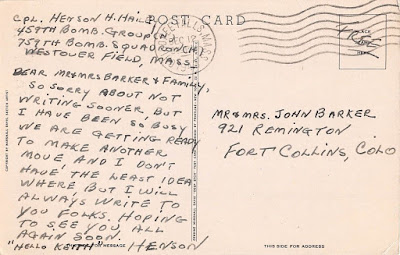 CPL. HENSON H. HAILE
459TH BOMB. GROUP (H
759TH BOMB. SQUADRON (H
WESTOVER FIELD, MASS.
POST CARD
FREE
PLACE
HERE
DEAR MR & MRS BARKER & FAMILY,
SO SORRY ABOUT NOT
WRITING SOONER, BUT
I HAVE BEEN SO BUSY
WE ARE GETTING READY
TO MAKE ANOTHER
MOVE, AND I DON'T
HAVE THE LEAST IDEA
WHERE, BUT I WILL
ALWAYS WRITE TO
YOU FOLKS. HOPING
TO SEE YOU, ALL
AGAIN SOON.
"HELLO KEITH" HENSON
MESSAGE
MR & MRS. JOHN BARKER
921 REMINGTON
FORT COLLINS, COLO
THIS SIDE FOR ADDRESS